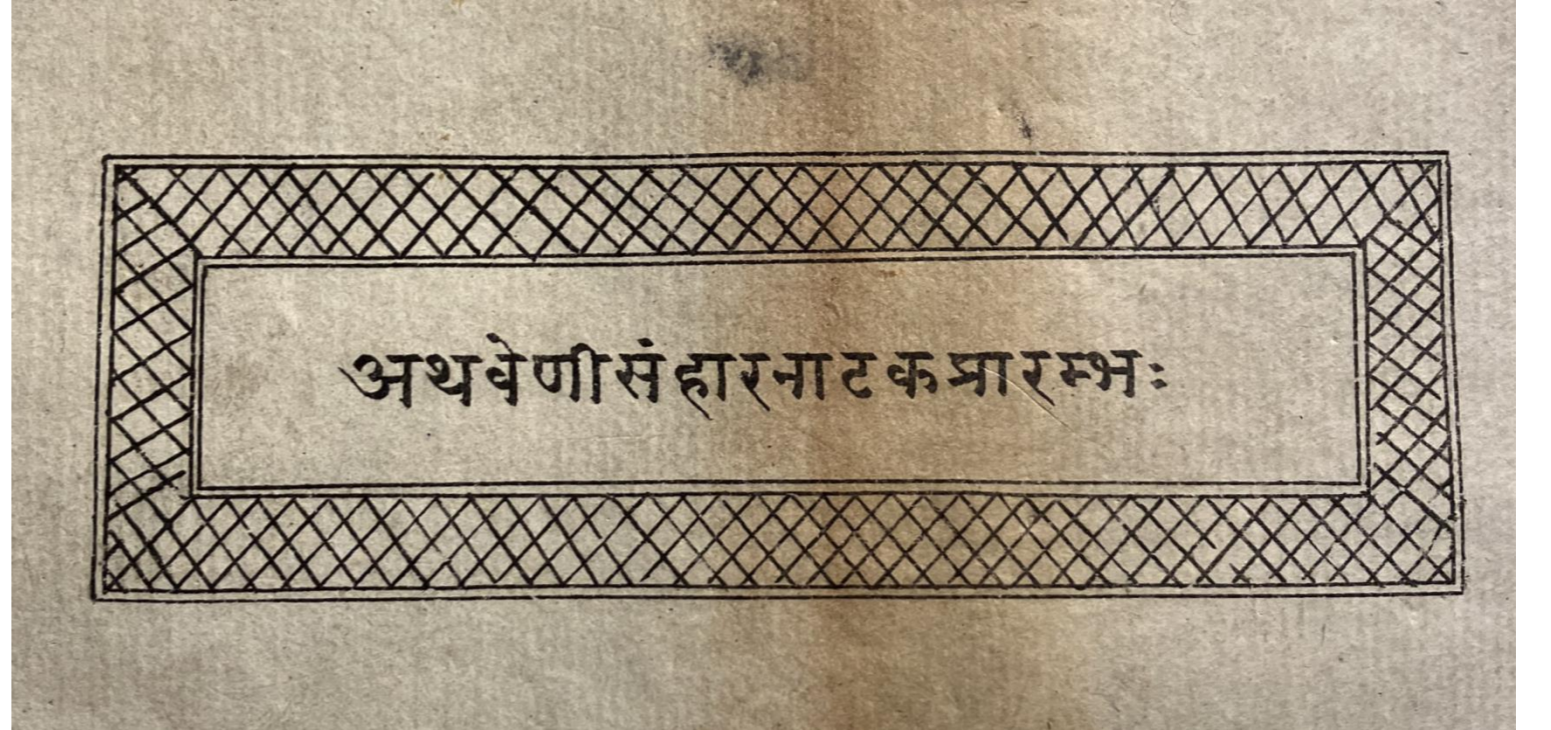 अथवेणीसंहारनाटकप्रारम्भः